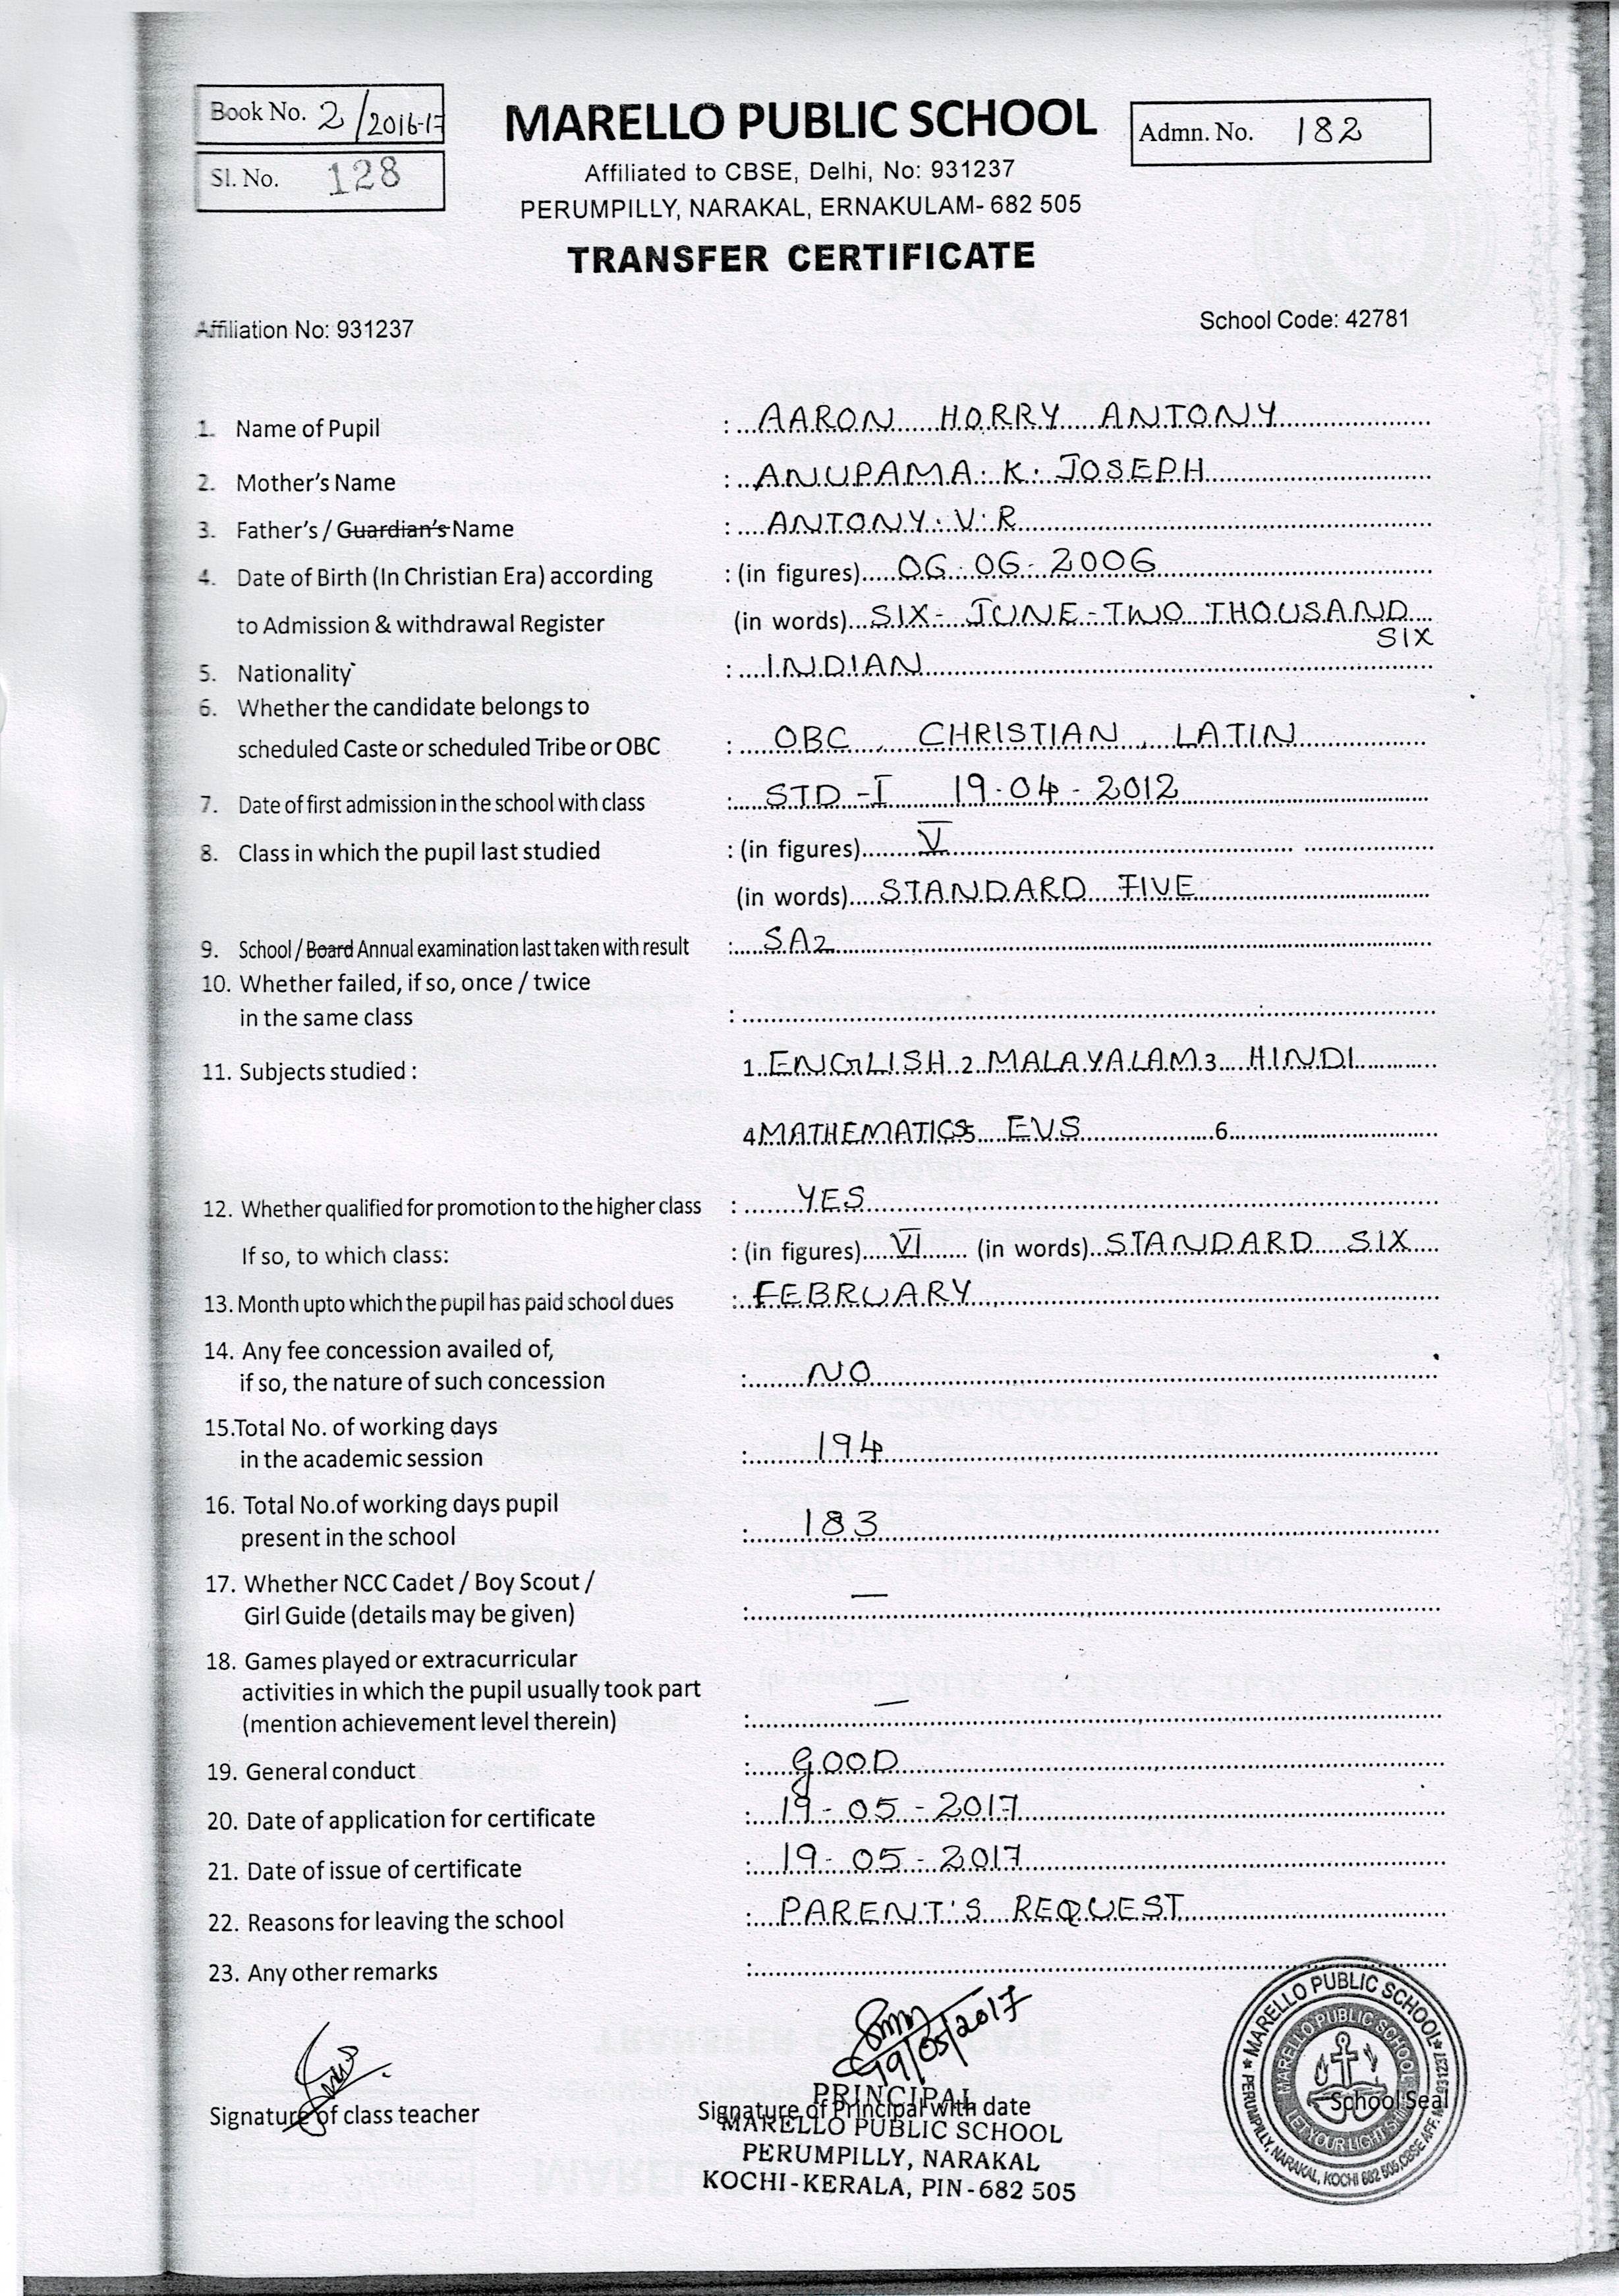 Book No. 2/2016-17
MARELLO PUBLIC SCHOOL
Admn. No. 182
Sl. No. 128
Affiliated to CBSE, Delhi, No: 931237
PERUMPILLY, NARAKAL, ERNAKULAM- 682 505
TRANSFER CERTIFICATE
Affiliation No: 931237 School Code: 42781
1. Name of Pupil : AARON HORRY ANTONY
2. Mother's Name : ANUPAMA. K. JOSEPH
3. Father's / Guardian's Name : ANTONY. V. R
4. Date of Birth (In Christian Era) according : (in figures) 06-06-2006
to Admission & withdrawal Register (in words) SIX- JUNE-TWO THOUSAND
SIX
5. Nationality : INDIAN
6. Whether the candidate belongs to
scheduled Caste or scheduled Tribe or OBC : OBC, CHRISTIAN, LATIN
7. Date of first admission in the school with class : STD -I 19-04-2012
8. Class in which the pupil last studied : (in figures) V
(in words) STANDARD FIVE
9. School / Board Annual examination last taken with result : SA2
10. Whether failed, if so, once / twice
in the same class :
11. Subjects studied : 1. ENGLISH 2. MALAYALAM 3. HINDI
4 MATHEMATICS 5 EVS 6
12. Whether qualified for promotion to the higher class : YES
If so, to which class: : (in figures) VI (in words) STANDARD SIX
13. Month upto which the pupil has paid school dues : FEBRUARY
14. Any fee concession availed of,
if so, the nature of such concession : NO
15. Total No. of working days
in the academic session : 194
16. Total No.of working days pupil
present in the school : 183
17. Whether NCC Cadet / Boy Scout /
Girl Guide (details may be given) : —
18. Games played or extracurricular
activities in which the pupil usually took part
(mention achievement level therein) : —
19. General conduct : GOOD
20. Date of application for certificate : 19-05-2017
21. Date of issue of certificate : 19-05-2017
22. Reasons for leaving the school : PARENT'S REQUEST
23. Any other remarks :
19/05/2017
PRINCIPAL
Signature of class teacher Signature of Principal with date School Seal
MARELLO PUBLIC SCHOOL
PERUMPILLY, NARAKAL
KOCHI-KERALA, PIN-682 505
MARELLO PUBLIC SCHOOL
PERUMPILLY, NARAKAL, KOCHI 682 505, CBSE AFF. No. 931237
MARELLO PUBLIC SCHOOL